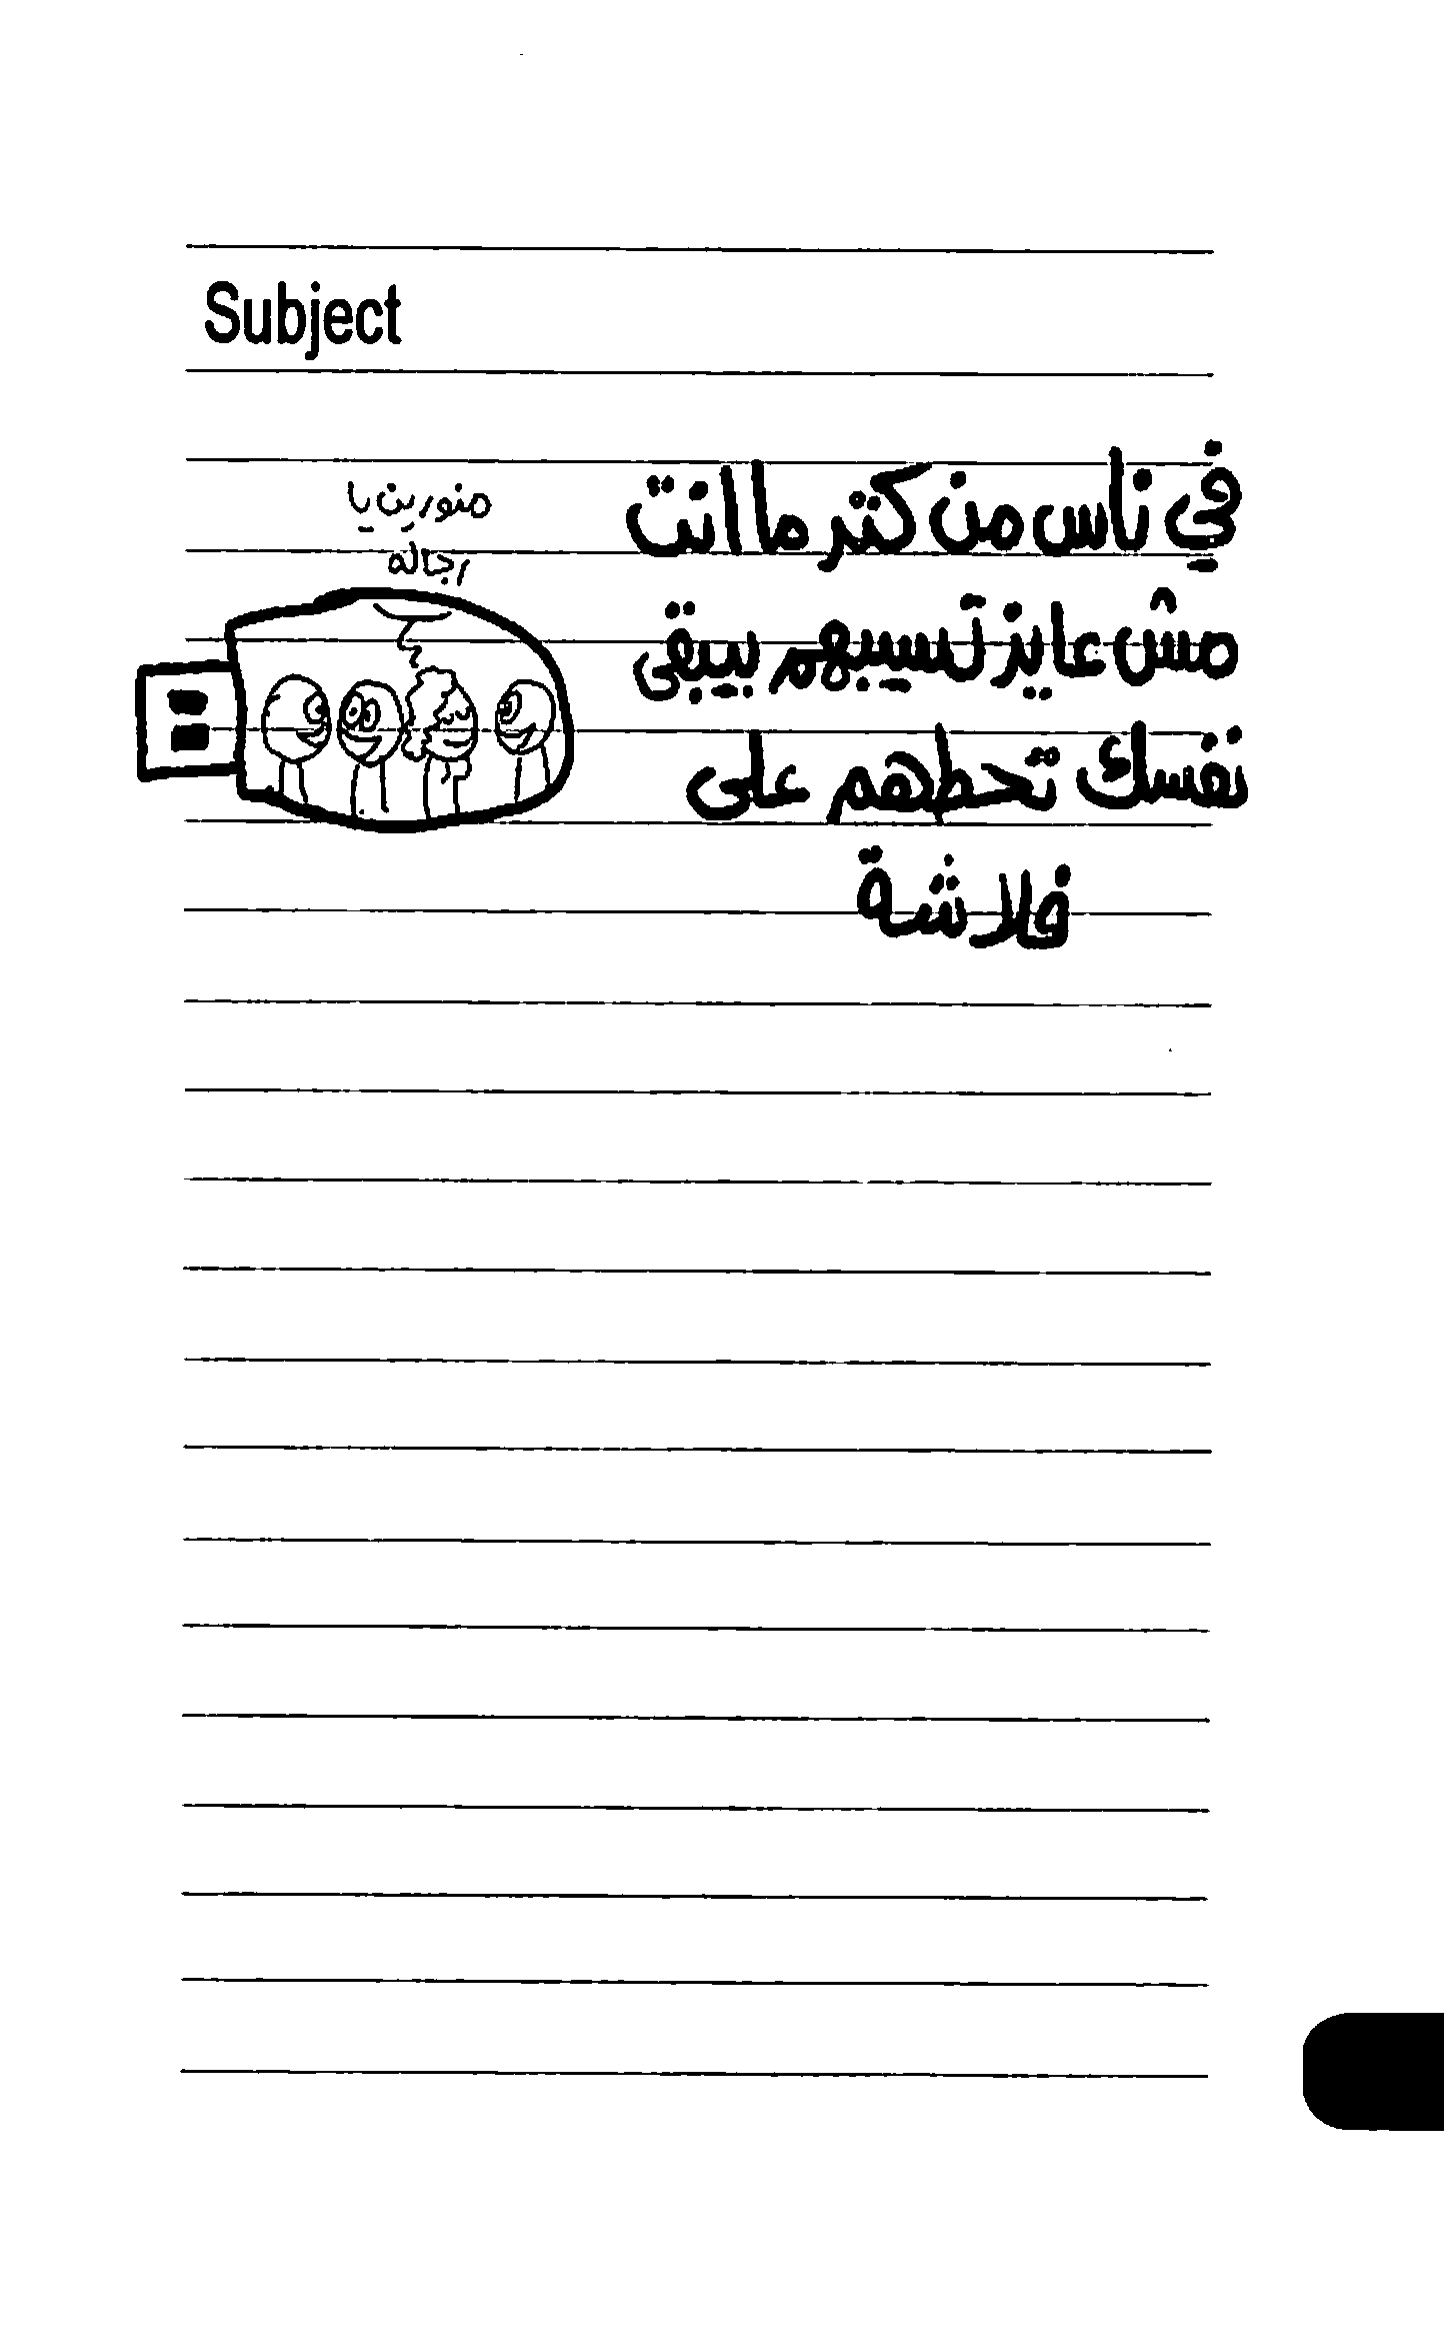 Subject
في ناس من كتر ما انت
مش عايز تسيبهم بيبقى
نفسك تحطهم على
فلاشة
منورين يا
رجاله